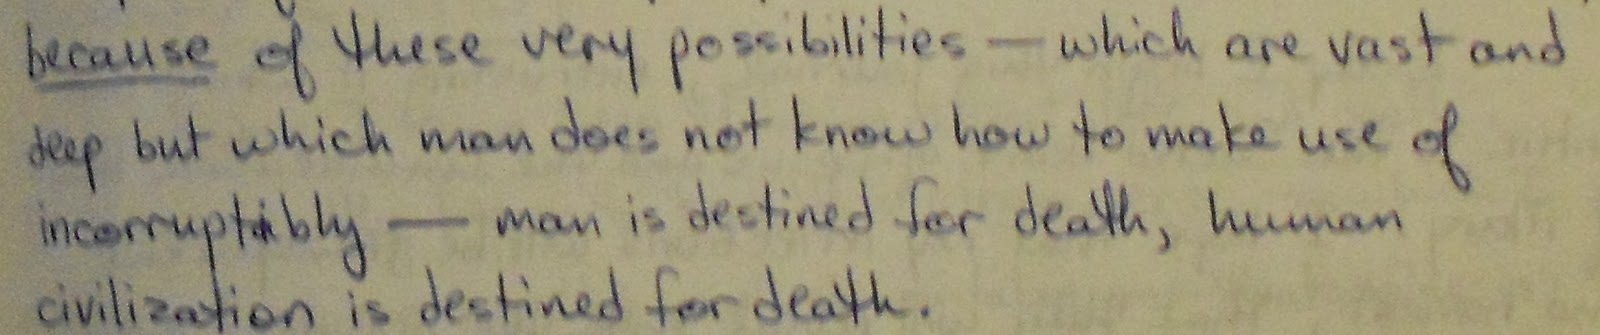 because of these very possibilities — which are vast and
deep but which man does not know how to make use of
incorruptibly — man is destined for death, human
civilization is destined for death.